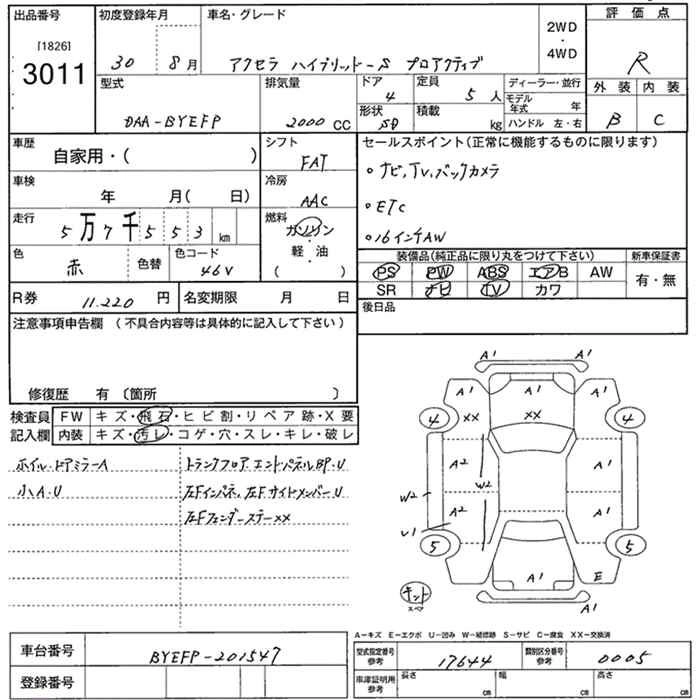 出品番号 初度登録年月 車名・グレード 評価点
[1826]
3011
30 8月 アクセラ ハイブリッド-S プロアクティブ 2WD ・ 4WD R
型式 排気量 ドア 4 定員 5人 ディーラー・並行 外装 内装
DAA-BYEFP 2000 CC 形状 SD 積載 kg モデル年式 年 B C
ハンドル 左・右
車歴 自家用・( ) シフト FAT セールスポイント(正常に機能するものに限ります)
車検 年 月( 日) 冷房 AAC ・ナビ,TV,バックカメラ
走行 5万7千553km 燃料 ガソリン・軽油( ) ・ETC
・16インチAW
色 赤 色替 色コード 46V 装備品(純正品に限り丸をつけて下さい) 新車保証書
PS PW ABS エアB AW 有・無
SR ナビ TV カワ
R券 11.220円 名変期限 月 日 後日品
注意事項申告欄 (不具合内容等は具体的に記入して下さい)
修復歴 有 〔箇所 〕
検査員 FW キズ・飛石・ヒビ割・リペア跡・X要
記入欄 内装 キズ・汚レ・コゲ・穴・スレ・キレ・破レ
ホイル・ドアミラーA トランクフロア エンドパネルBP・U
小A・U 左Fインパネ,左FサイドメンバーU
左FフェンダーステーXX
A1 A1
A1 A1 A1
4 XX XX 4
A2 A1
W2 W2
A2 A1
U1
5 5
A1 E
キット スペア A1 A1
A-キズ E-エクボ U-凹み W-補修跡 S-サビ C-腐食 XX-交換済
車台番号 BYEFP-201547 型式指定番号 参考 17644 類別区分番号 参考 0005
登録番号 車庫証明用 参考 長さ cm 幅 cm 高さ cm